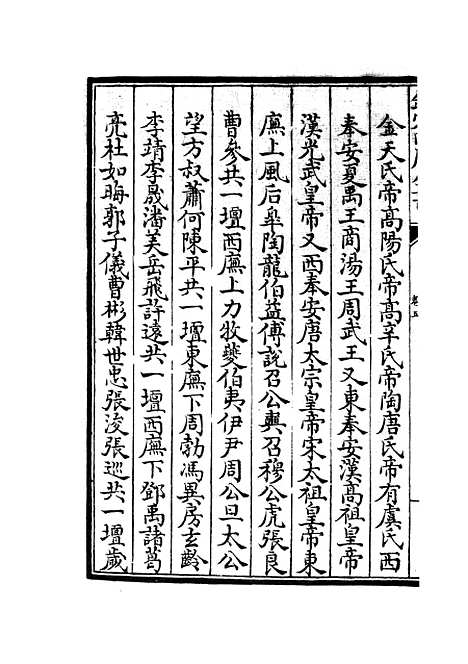 金天氏帝髙陽氏帝髙辛氏帝陶唐氏帝有虞氏西
奉安夏禹王商湯王周武王又東奉安漢髙祖皇帝
漢光武皇帝又西奉安唐太宗皇帝宋太祖皇帝東
廡上風后臯陶龍伯益傅說召公奭召穆公虎張良
曹參共一壇西廡上力牧夔伯夷伊尹周公旦太公
望方叔蕭何陳平共一壇東廡下周勃馮異房玄齡
李靖李晟潘美岳飛許遠共一壇西廡下鄧禹諸葛
亮杜如晦郭子儀曹彬韓世忠張浚張巡共一壇歲